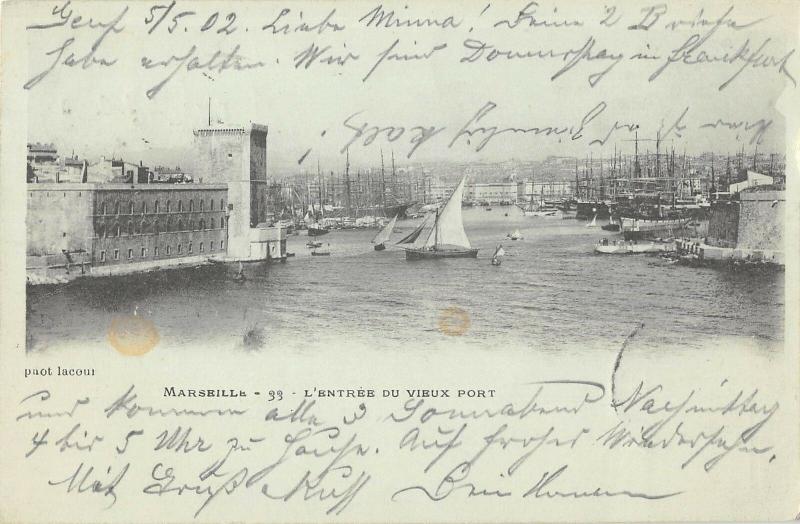 Genf 5/5.02. Liebe Minna! Deine 2 Briefe
habe erhalten. Wir sind Donnerstag in Frankfurt
phot lacour
MARSEILLE - 33 - L'ENTRÉE DU VIEUX PORT
und kommen alle 3 Sonnabend Nachmittag
4 bis 5 Uhr zu Hause. Auf frohes Wiedersehn,
Mit Gruß Kuss Dein